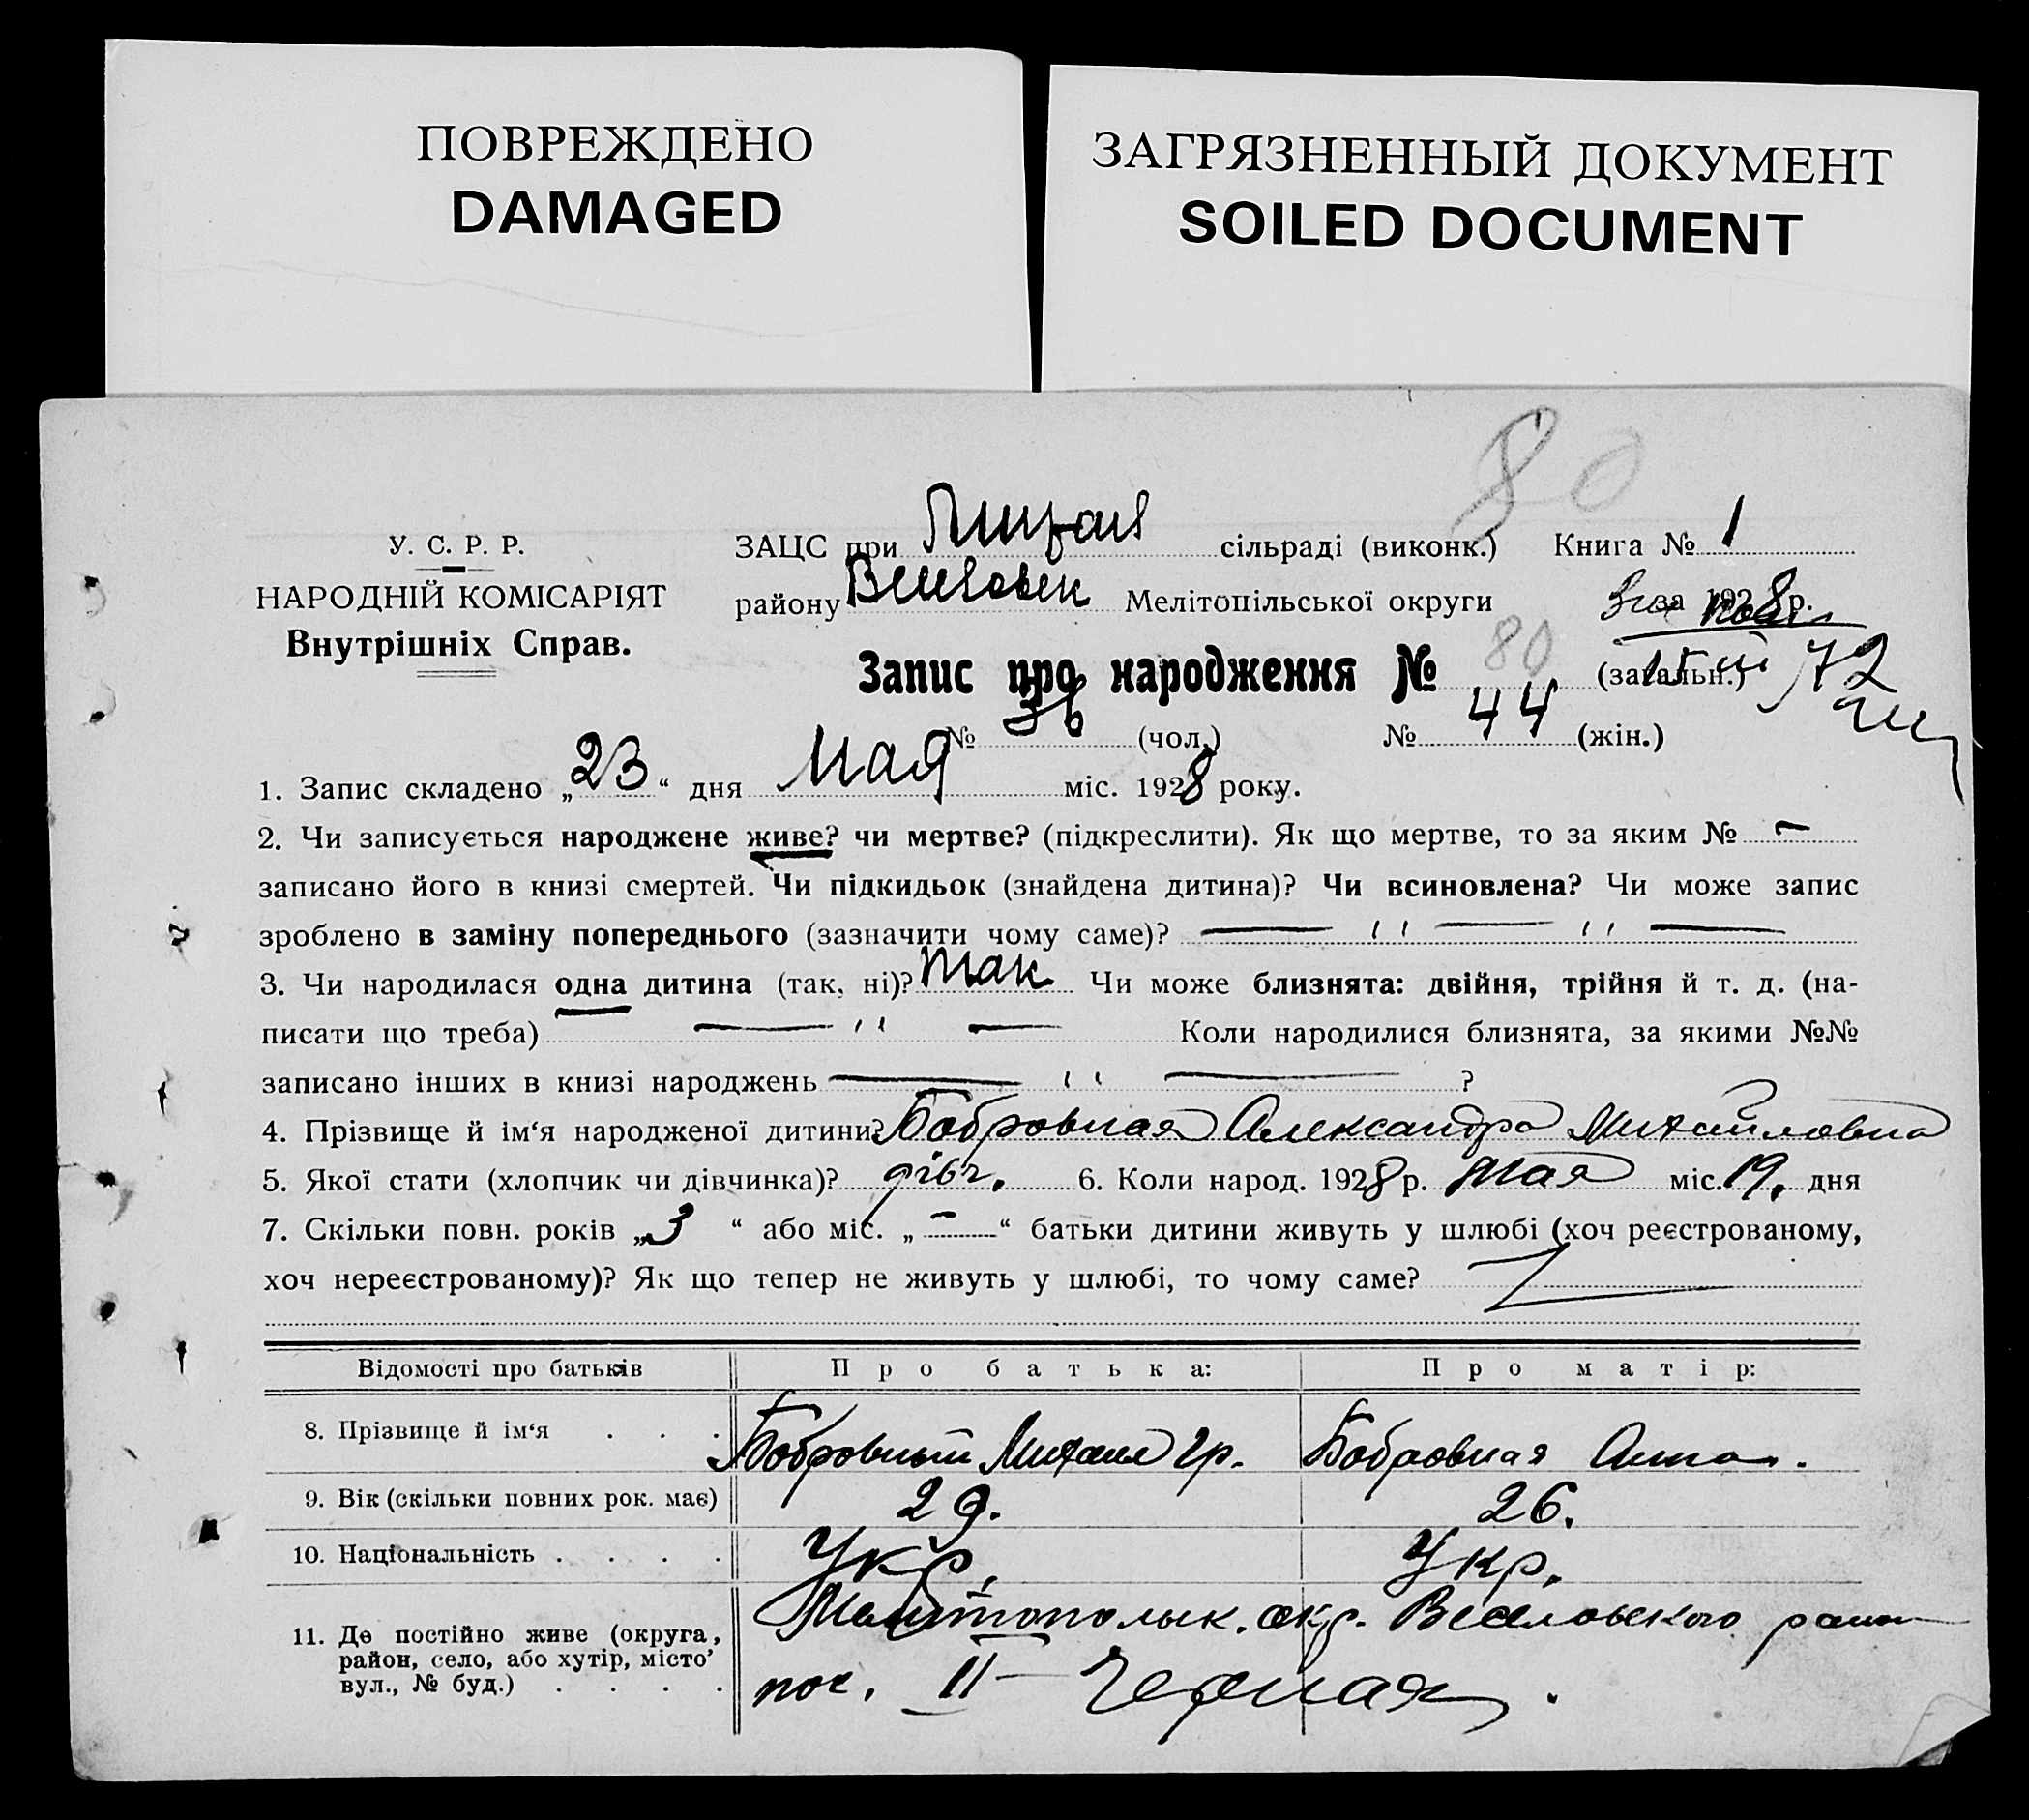 ПОВРЕЖДЕНО
DAMAGED
ЗАГРЯЗНЕННЫЙ ДОКУМЕНТ
SOILED DOCUMENT
80
У. С. Р. Р.
НАРОДНІЙ КОМІСАРІЯТ
Внутрішніх Справ.
ЗАЦС при сільраді (виконк.) Книга № 1
району Мелітопільської округи за 1928 р.
Запис про народження № 80 (загальн.) 72
№ 36 (чол.) № 44 (жін.)
1. Запис складено „23“ дня Мая міс. 1928 року.
2. Чи записується народжене живе? чи мертве? (підкреслити). Як що мертве, то за яким № —
записано його в книзі смертей. Чи підкидьок (знайдена дитина)? Чи всиновлена? Чи може запис
зроблено в заміну попереднього (зазначити чому саме)? — '' — '' —
3. Чи народилася одна дитина (так, ні)? так Чи може близнята: двійня, трійня й т. д. (на-
писати що треба) — '' — Коли народилися близнята, за якими №№
записано інших в книзі народжень — '' — ?
4. Прізвище й ім‘я народженої дитини? Бобровная Александра Михайловна
5. Якої стати (хлопчик чи дівчинка)? дівч. 6. Коли народ. 1928 р. мая міс. 19. дня
7. Скільки повн. років „3“ або міс. „—“ батьки дитини живуть у шлюбі (хоч реєстрованому,
хоч нереєстрованому)? Як що тепер не живуть у шлюбі, то чому саме?
Відомості про батьків Про батька: Про матір:
8. Прізвище й ім‘я . . . Бобровный Михаил Гр. Бобровная Анна.
9. Вік (скільки повних рок. має) 29. 26.
10. Національність . . . . Укр. Укр.
11. Де постійно живе (округа,
район, село, або хутір, місто,
вул., № буд.) . . . .
Мелитопольск. окр. Веселовского район
пос. II — Черная.